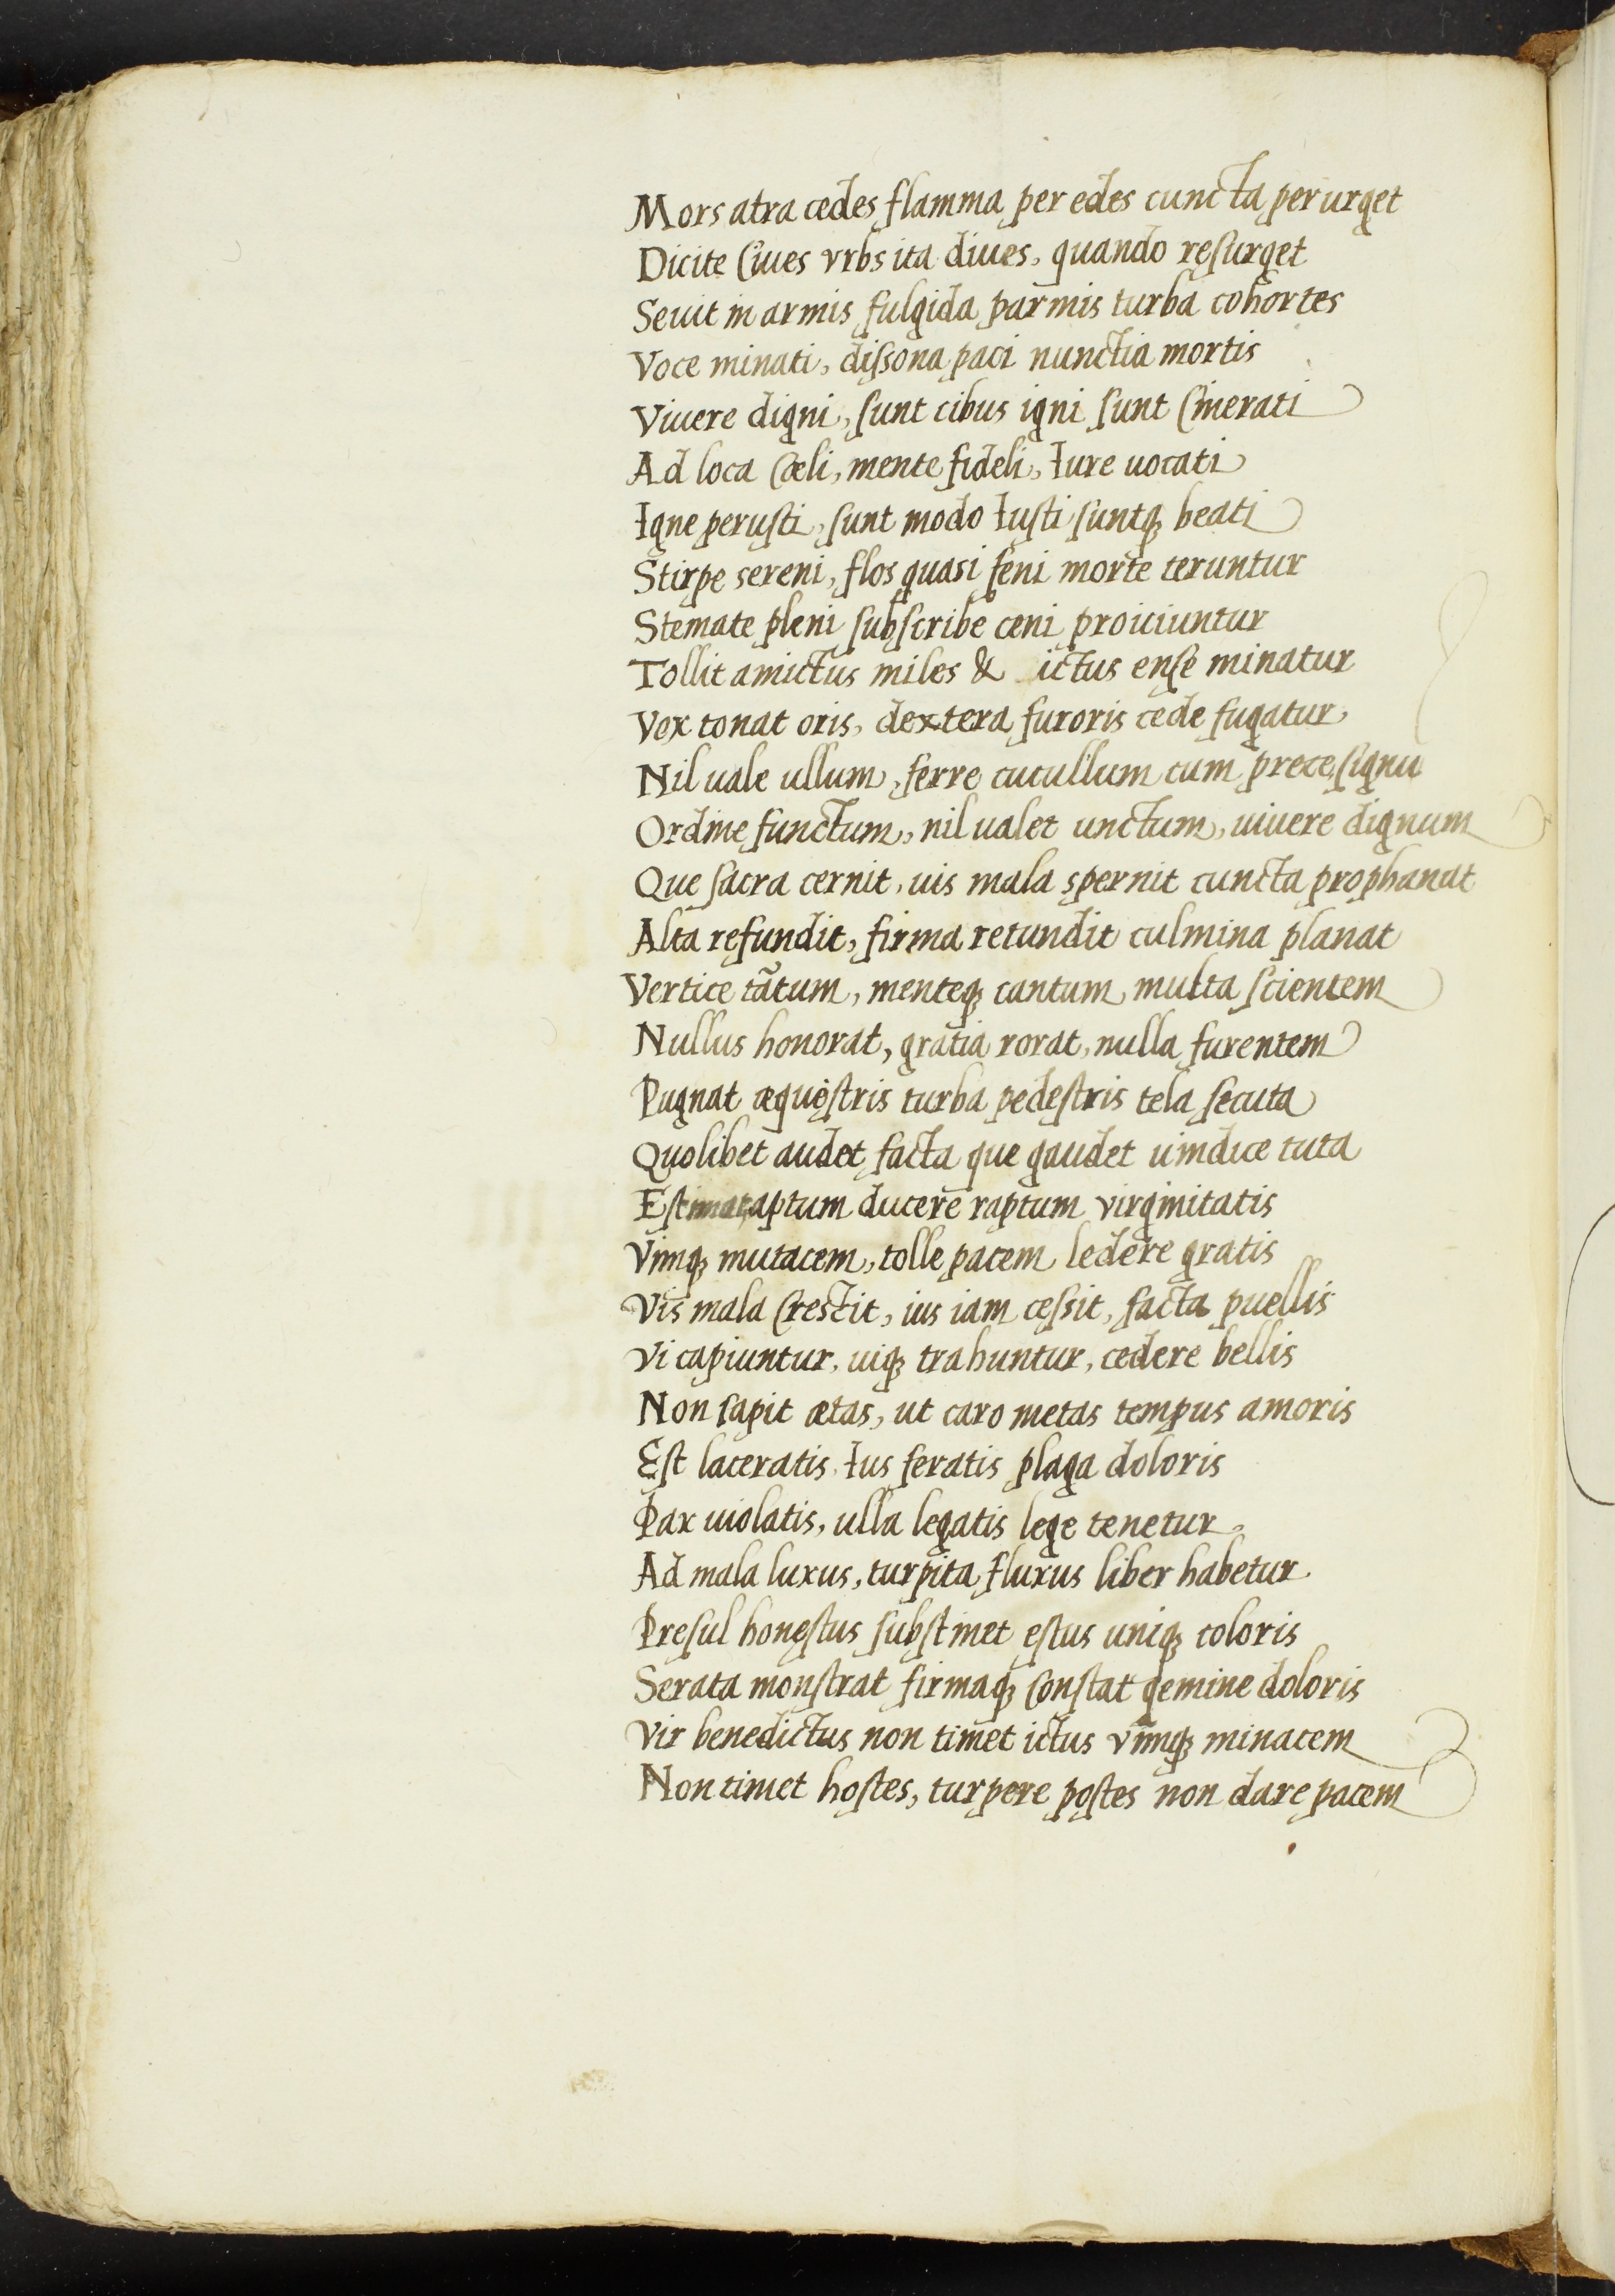 Mors atra cedes flamma per edes cuncta perurget
Dicite Ciues vrbs ita diues, quando resurget
Seuit in armis fulgida parmis turba cohortes
Voce minati, dissona paci nunctia mortis
Viuere digni, sunt cibus igni sunt Cinerati
Ad loca Cœli, mente fideli, Iure uocati
Igne perusti, sunt modo Iusti suntq; beati
Stirpe sereni, flos quasi feni morte teruntur
Stemate pleni subscribe ceni proiiciuntur
Tollit amictus miles & ictus ense minatur
Vox tonat oris, dextera furoris cede fugatur,
Nil uale ullum, ferre cucullum cum prece, signu
Ordine functum, nil ualet unctum, uiuere dignum
Que sacra cernit, uis mala spernit cuncta prophanat
Alta refundit, firma retundit culmina planat
Vertice tātum, menteq; cantum multa scientem
Nullus honorat, gratia rorat, nulla furentem
Pugnat æquestris turba pedestris tela secuta
Quolibet audet facta que gaudet uindice tuta
Estimat, aptum ducere raptum virginitatis
Vimq; mutacem, tolle pacem ledere gratis
Vis mala Crescit, ius iam cessit, facta puellis
Vi capiuntur, uiq; trahuntur, cedere bellis
Non sapit ætas, ut caro metas tempus amoris
Est laceratis Ius feratis plaga doloris
Pax uiolatis, ulla legatis lege tenetur.
Ad mala luxus, turpita fluxus liber habetur.
Presul honestus substinet estus uniq; coloris
Serata monstrat firmaq; Constat gemine doloris
Vir benedictus non timet ictus vimq; minacem
Non timet hostes, turpere postes non dare pacem